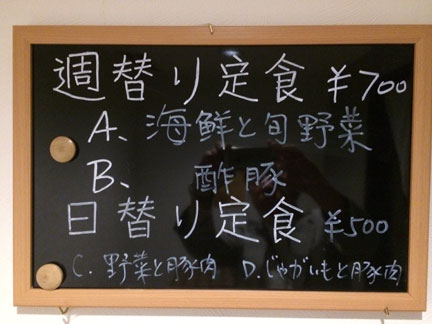 週替り定食 ¥700
A、海鮮と旬野菜
B、 酢豚
日替り定食 ¥500
C. 野菜と豚肉 D. じゃがいもと豚肉